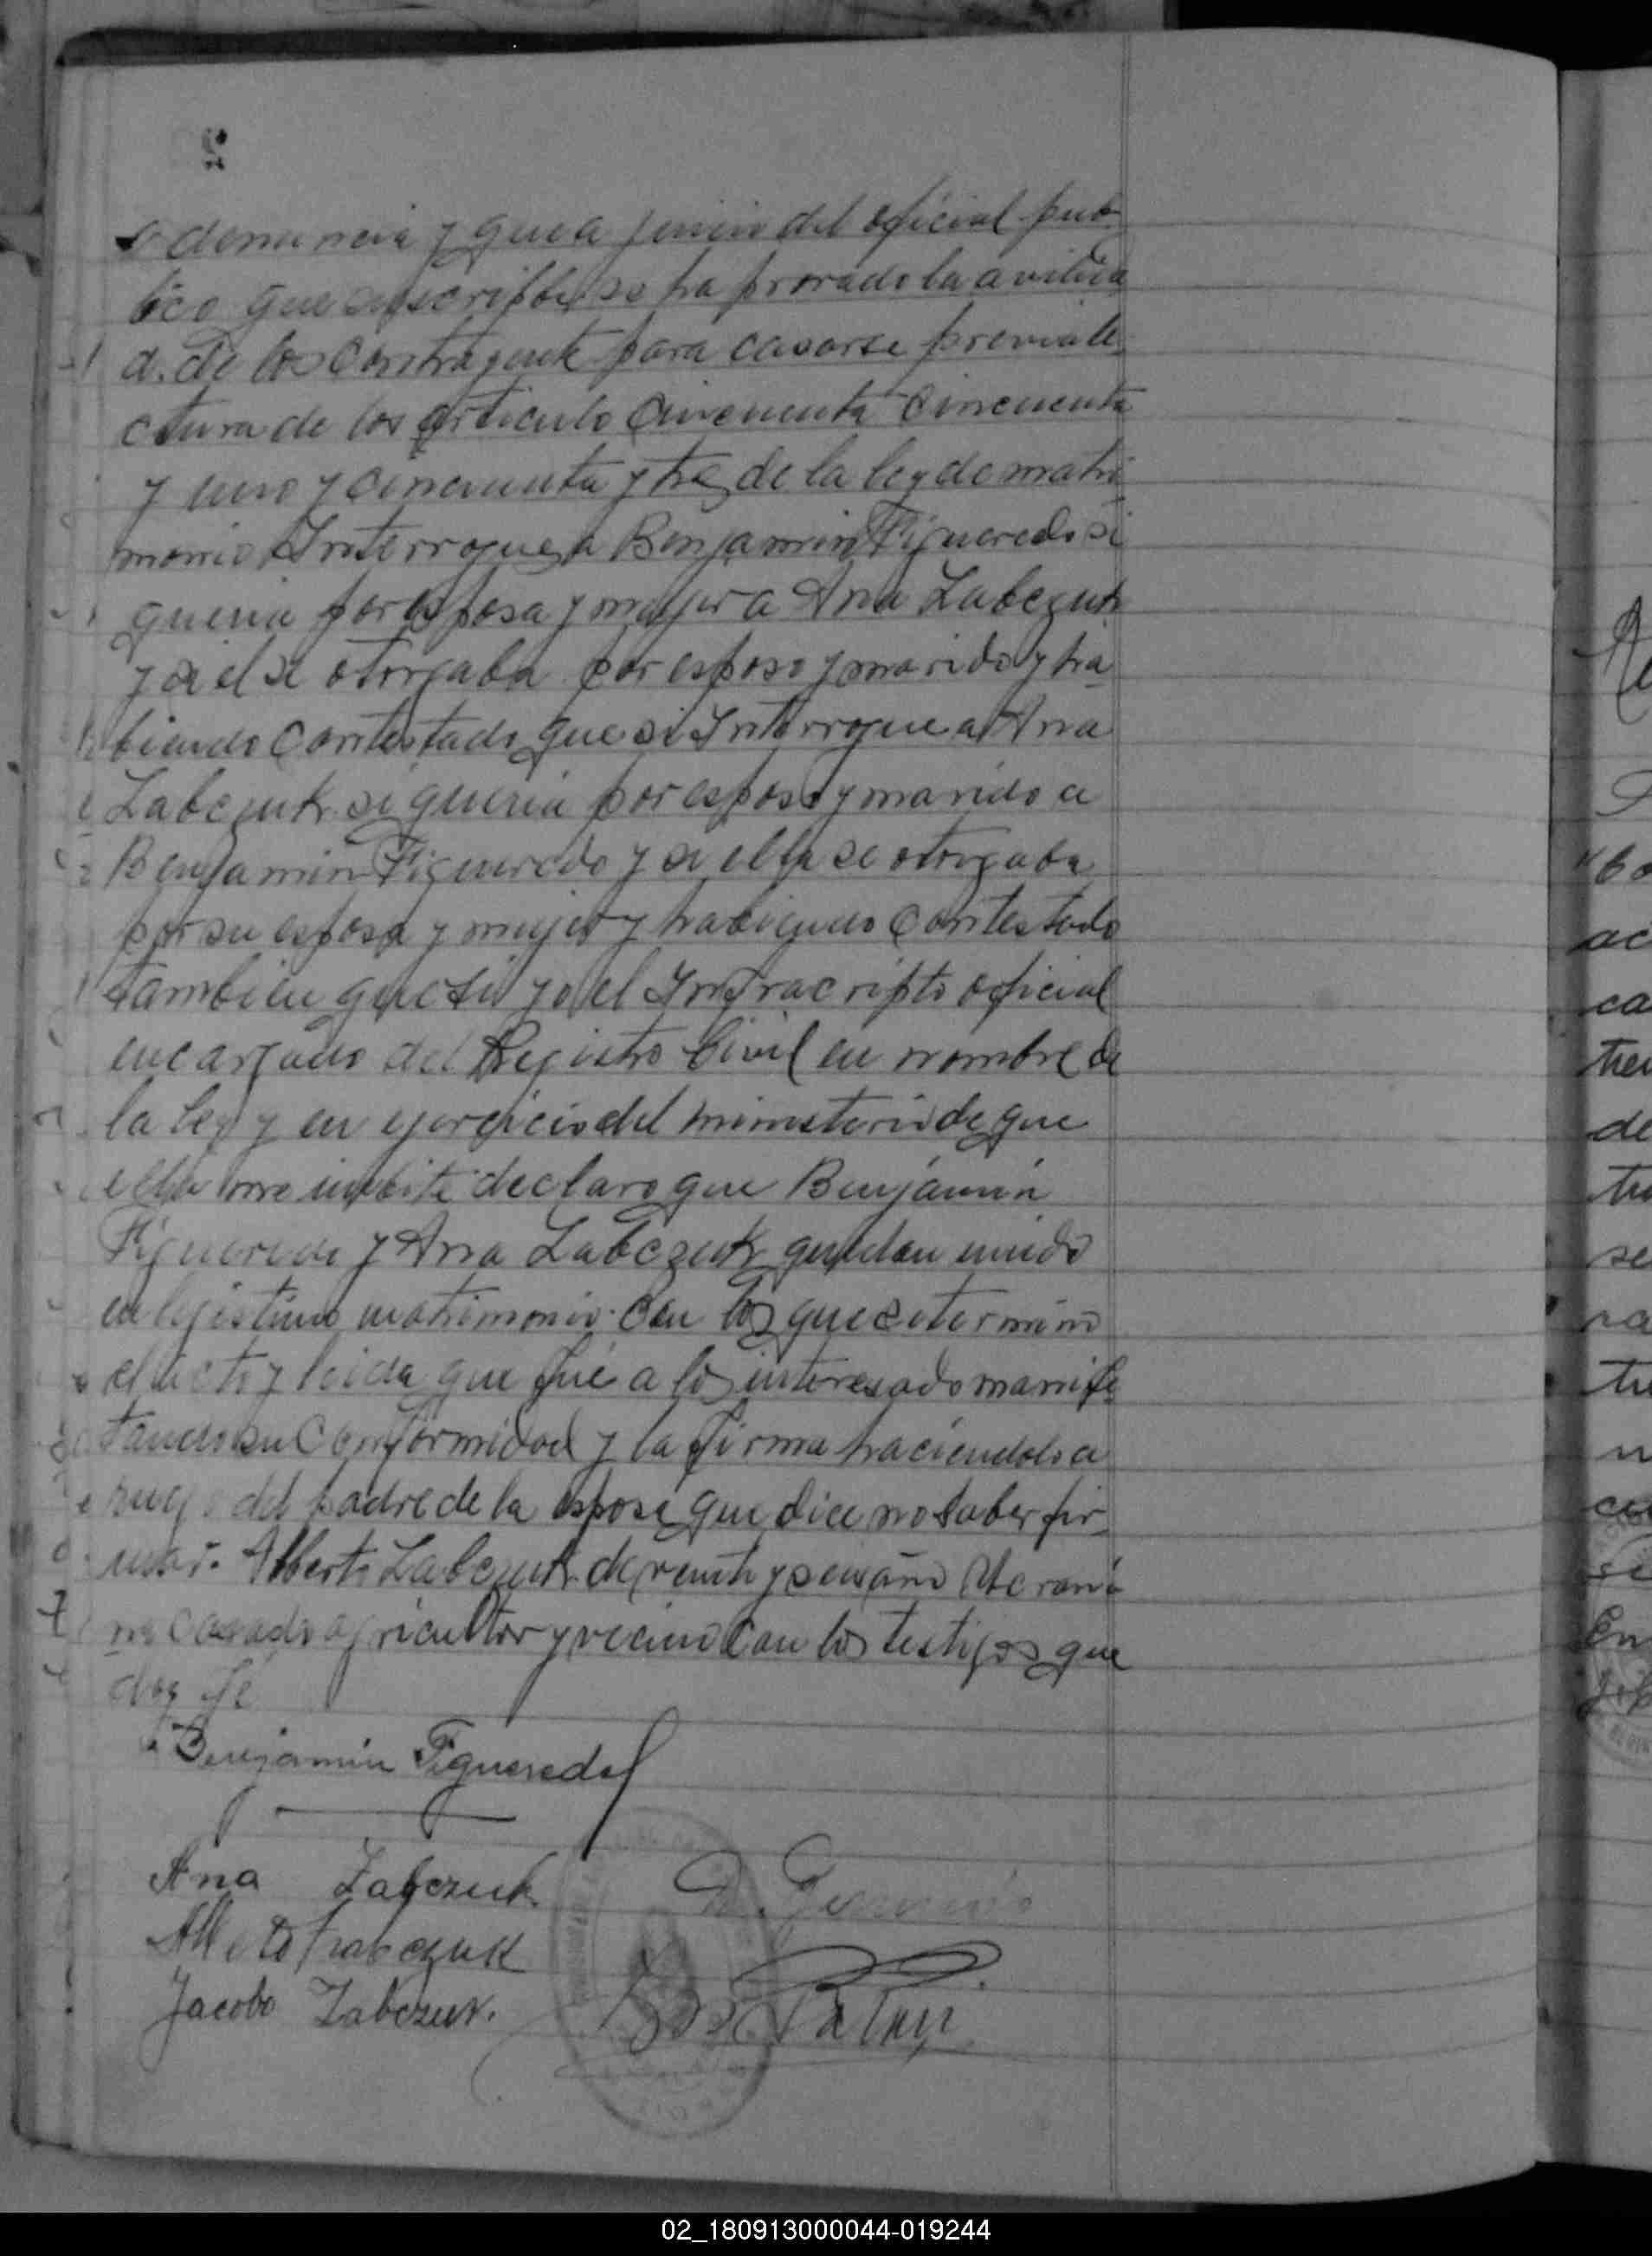 o denuncia y que a juicio del oficial pub-
lico que subscribe se ha provado la avilida
d. de los Contrayente para casarse previa le-
ctura de los articulo Cincuenta Cincuenta
y uno y cincuenta y tres de la ley de matri-
monio Interrogue a Benjamin Figueredo si
queria por esposa y mujer a Ana Zabczuk
y si el se otorgaba por esposo y marido y ha-
biendo Contestado que si Interrogue a Ana
Zabczuk si queria por esposo y marido a
Benjamin Figueredo y si ella se otorgaba
por su esposa y mujer y habiendo Contestado
tambien que si yo el Infracripto oficial
encargado del Registro Civil en nombre de
la ley y en ejercicio del ministerio de que
ella me declaro que Benjamin
Figueredo y Ana Zabczuk quedan unido
en lejistimo matrimonio. Con los que se termino
el acto y leida que fué a los interesado manifes
tando su Conformidad y la firma haciendolo a
ruego del padre de la esposa que dice no saber fir-
mar. Alberto Zabczuk de veinte y seis año Ucrani
no Casado agricultor y vecino Con los testigos que
doy fe
Benjamin Figueredo
Ana Zabczuk
Alberto Zabczuk
Jacobo Zabczuk.
02_180913000044-019244